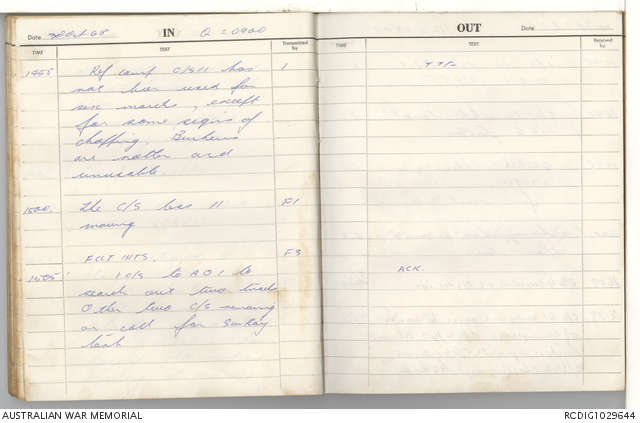 Date 30 Oct 68 IN Q = 0900
TIME TEXT Transmitted by
1455 Ref camp C/S 11 has 1
not been used for
six months, except
for some signs of
chopping. Bunkers
are rotten and
unusable.
1500. the C/S less 11 F1
moving
FUT INTS. F3
1505 1 C/S to AO 1 to
search out two tracks
Other two C/S remaining
on call for
task
OUT Date
TIME TEXT Received by
ACK.
AUSTRALIAN WAR MEMORIAL RCDIG1029644